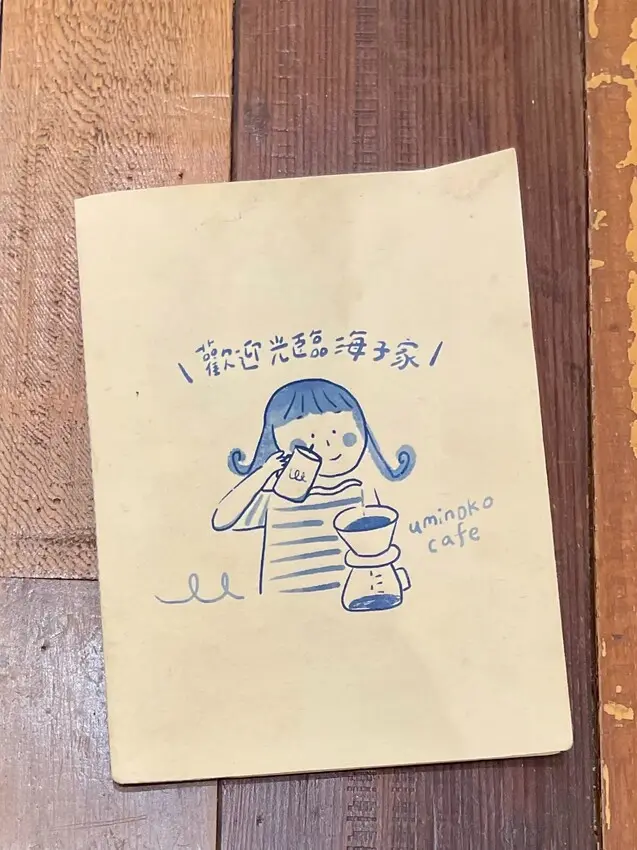 \ 歡迎光臨海子家 /
uminoko
cafe